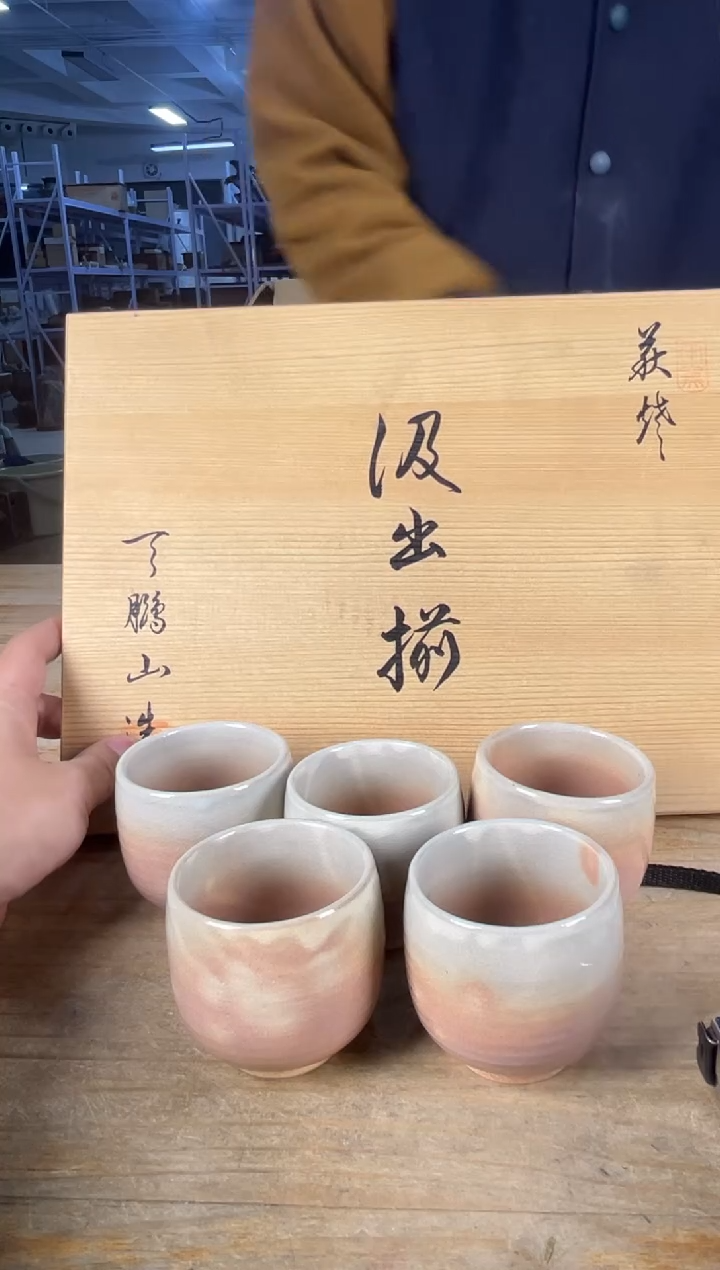 萩焼
汲出揃
天鵬山造